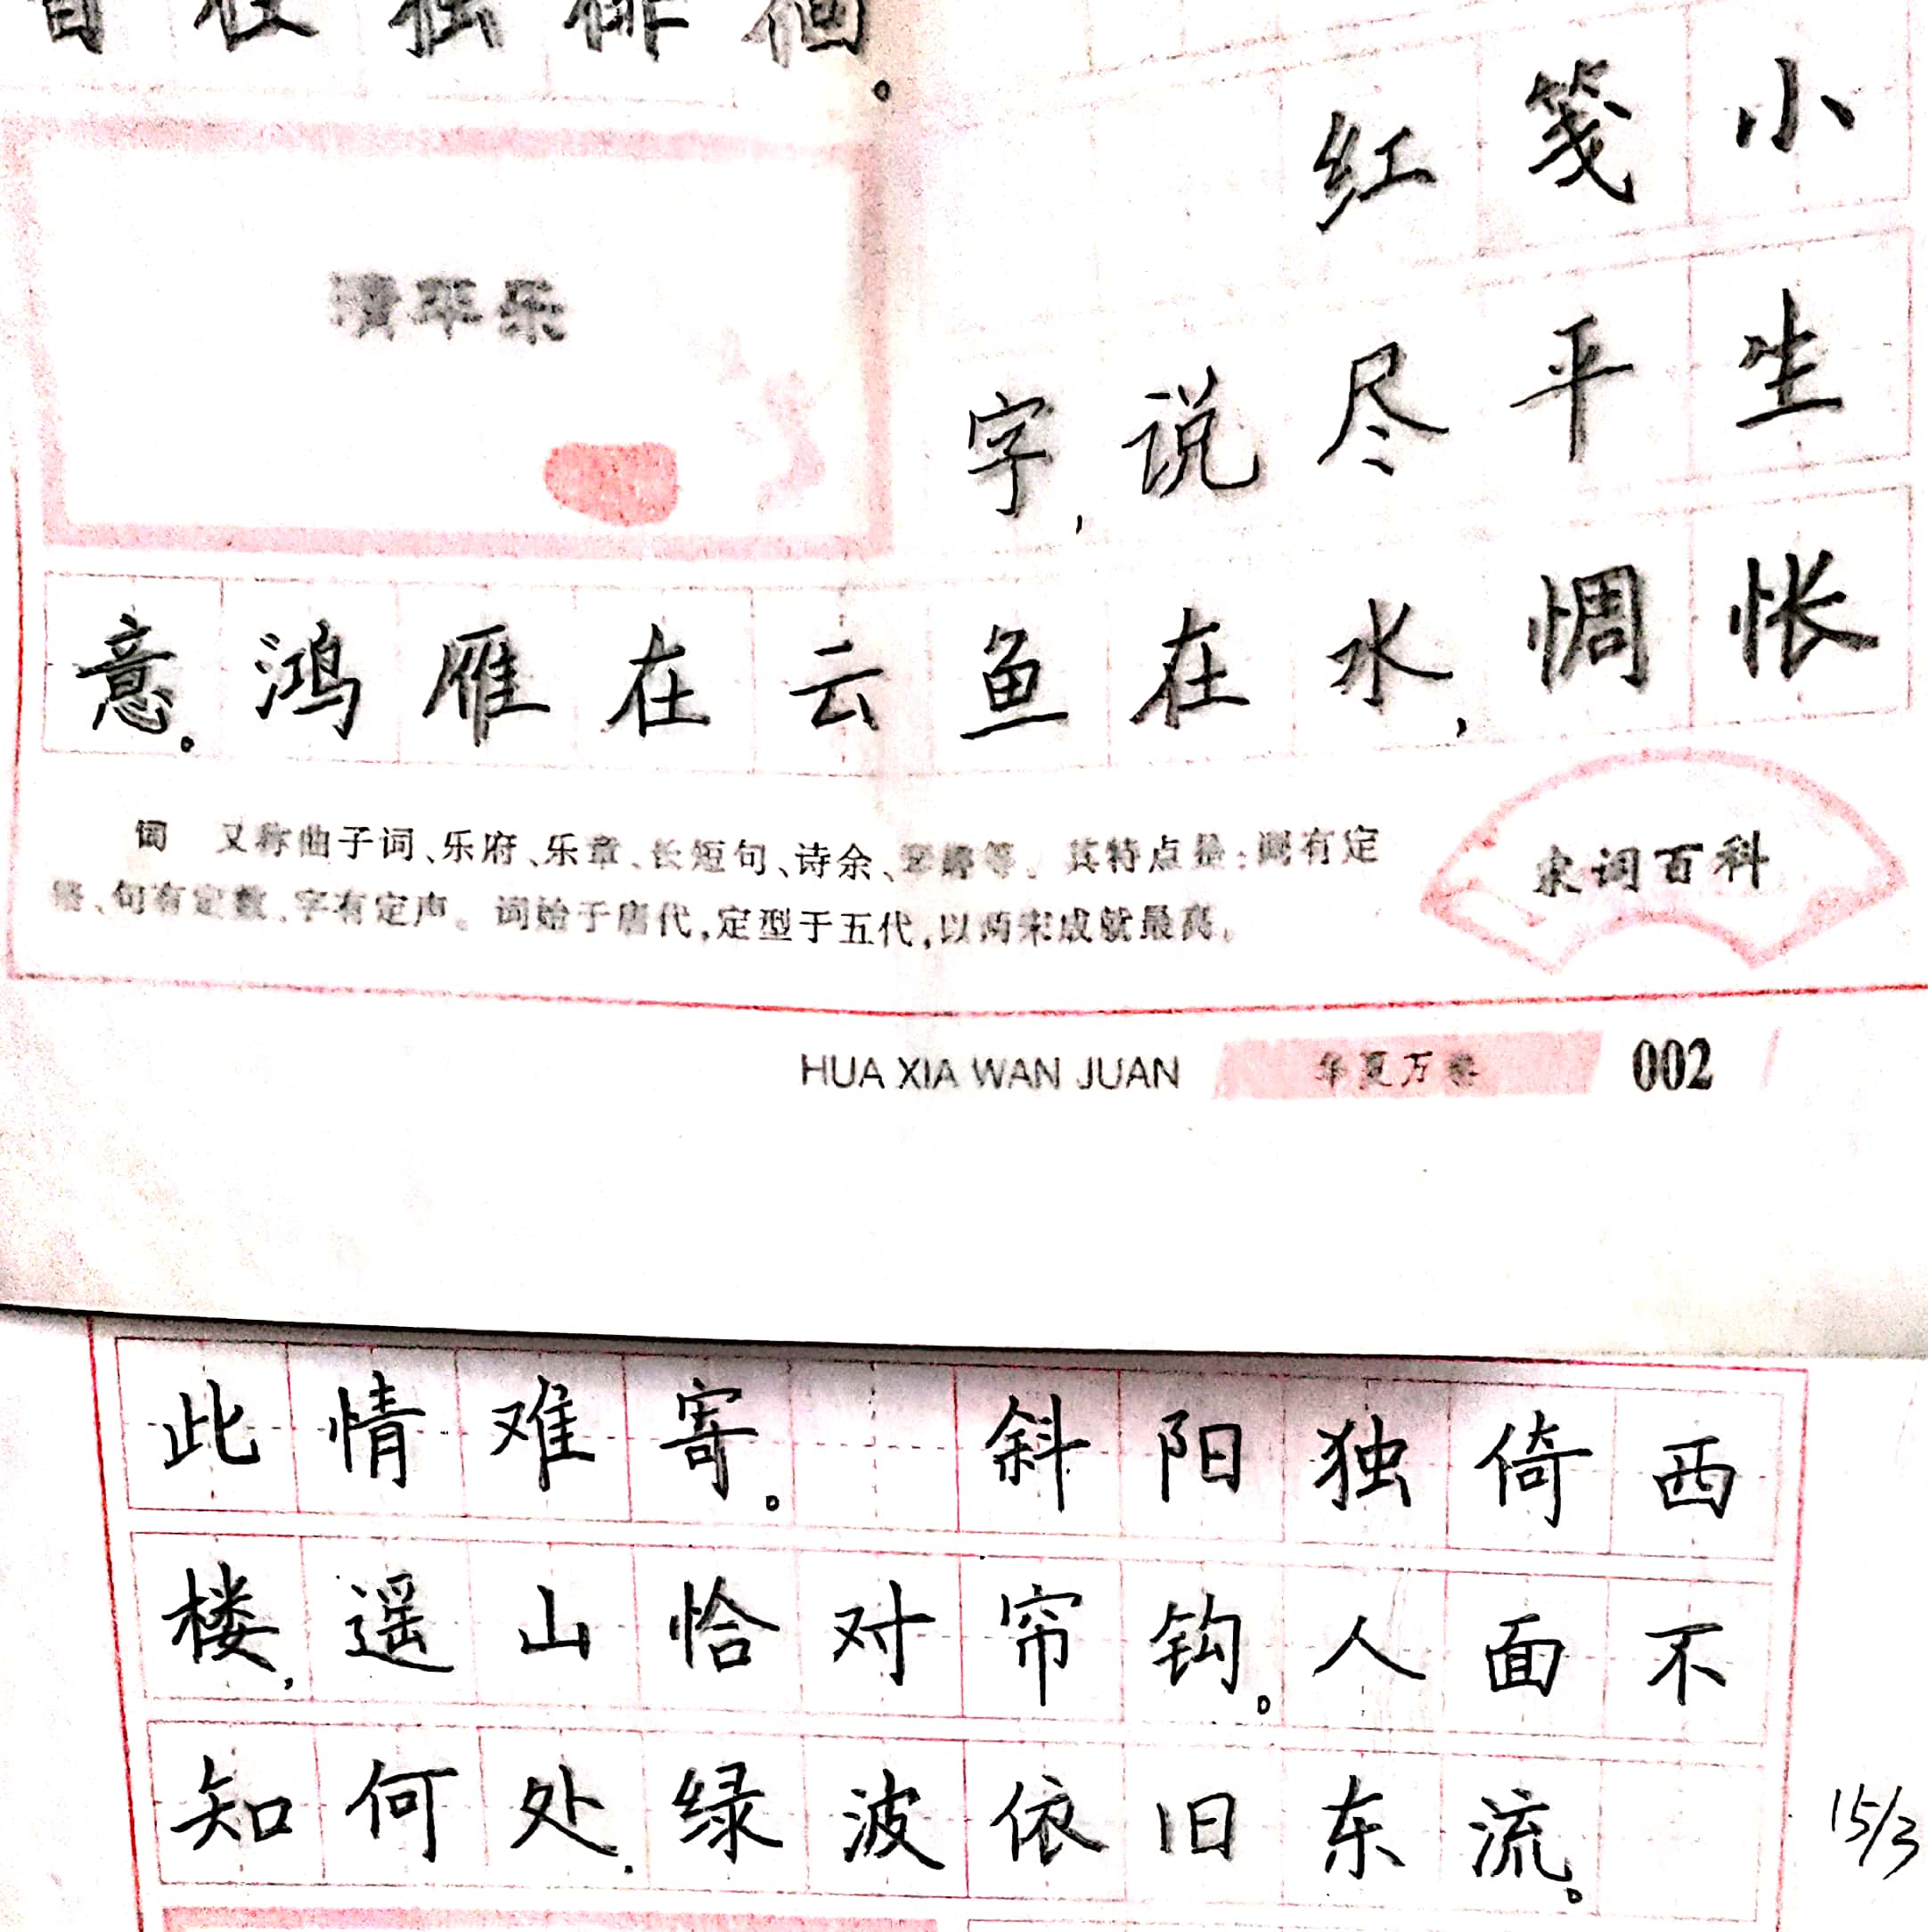 香径独徘徊。
清平乐
红笺小
字,说尽平生
意。鸿雁在云鱼在水,惆怅
词 又称曲子词、乐府、乐章、长短句、诗余、琴趣等。其特点是:调有定
格、句有定数、字有定声。词始于唐代,定型于五代,以两宋成就最高。
宋词百科
HUA XIA WAN JUAN 华夏万卷 002
此情难寄。 斜阳独倚西
楼,遥山恰对帘钩。人面不
知何处,绿波依旧东流。
15/3